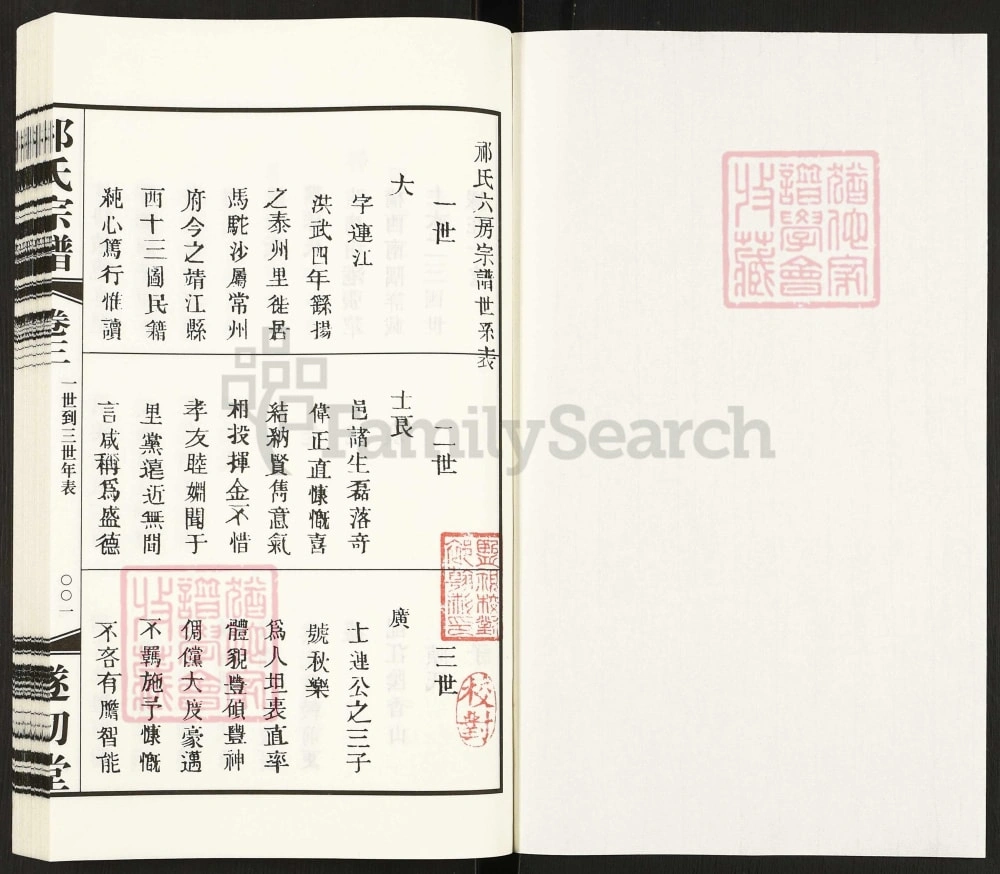 祁氏六房宗譜世系表
一世
大
字連江
洪武四年繇揚
之泰州里徙居
馬馱沙屬常州
府今之靖江縣
西十三圖民籍
純心篤行惟讀
二世
士良
邑諸生磊落奇
偉正直慷慨喜
結納賢雋意氣
相投揮金不惜
孝友睦婣聞于
里黨遠近無間
言咸稱爲盛德
三世
廣
士連公之三子
號秋樂
爲人坦衷直率
體貌豐碩豐神
倜儻大度豪邁
不羈施予慷慨
不吝有膽智能
祁氏宗譜
卷三
一世到三世年表
〇〇一
校對
譜學會
收藏
FamilySearch